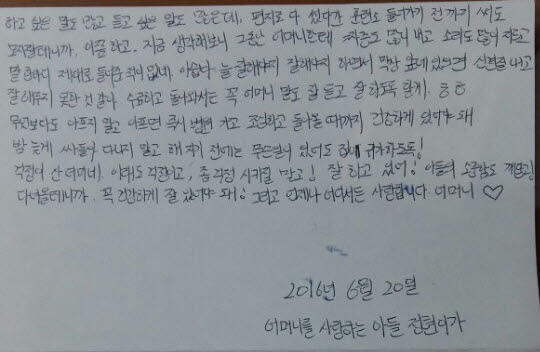 하고 싶은 말도 많고 듣고 싶은 말도 많은데, 편지로 다 썼다간 훈련소 들어가기 전까지 써도
모자랄테니까, 이쯤 하고. 지금 생각해보니 그동안 어머니한테 짜증도 많이 내고 소리도 많이 지르고
말 한마디 제대로 들어준 적이 없네. 아쉽다. 늘 잘해야지 잘해야지 하면서 막상 앞에 있으면 신경질 내고
잘 해주지 못한 것 같다. 수료하고 돌아와서는 꼭 어머니 말도 잘 듣고 잘 하도록 할게. ㅎㅎ
무엇보다도 아프지 말고 아프면 즉시 병원 가고 조심하고 돌아올 때까지 건강하게 있어야 돼
밤 늦게 싸돌아 다니지 말고 해 지기 전에는 무슨일이 있어도 귀가하도록!
걱정이 산더미네. 아래도 걱정하고, 좀 걱정 시키질 말고! 잘 하고 있어! 아들의 소중함도 깨닫고!
다녀올테니까. 꼭 건강하게 잘 있어야 돼! 그리고 언제나 어디서든 사랑합니다. 어머니 ♡
2016년 6월 20일
어머니를 사랑하는 아들